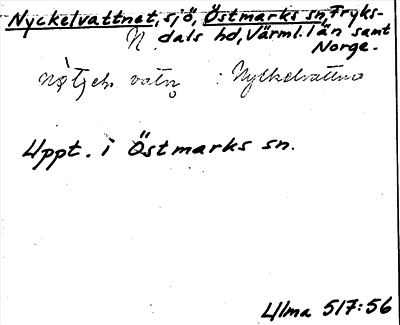 Nyckelvattnet, sjö, Östmarks sn, Fryks-
N. dals hd, Värml. län samt
Norge.
: Nyckelvattnə
Uppt. i Östmarks sn.
Ulma 517:56